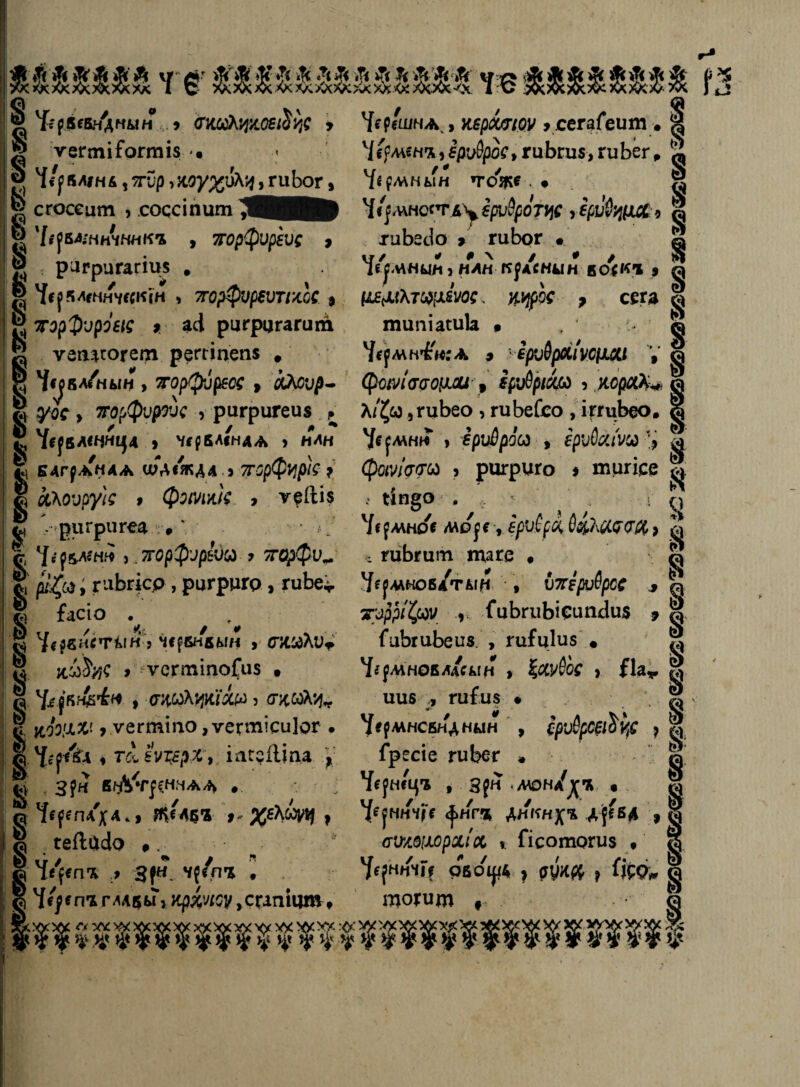 ЧЕ ЧЕ
Червевѝдный , σκωληκοειδὴς ,
vermiformis .
Че́рвлень , πῦρ , κογχύλη , rubor ,
croceum , coccinum
Червле́ничникъ , πορφυρεὺς ,
purpurarius .
Червле́ническїй , πορφυρευτικὸς ,
πορφυρόεις , ad purpurarum
venatorem pertinens .
Червле́ный , πορφύρεος , ἁλουρ-
γὸς , πορφυροῦς , purpureus .
Червлени́ца , червле́ная , или
багрѧ́наѧ ѡде́жда , πορφυρὶς ,
ἁλουργὶς , φοινικὶς , vestis
purpurea .
Червленю̀ , πορφυρεύω , πορφυ-
ρίζω , rubrico , purpuro , rube-
facio .
Черви́стый , черви́вый , σκωλυ-
κώδης , verminosus .
σκωληκιάω , σκωλη-
vermino , vermiculor .
τὰ ἔντερα , intestina ,
зри
Черепа́ха , же́лвь , χελώνη ,
testudo .
Че́реп , зри .
Че́репъ главы̀ , κράνιον , cranium ,
κεράσιον , cerafeum .
ἐρυθρὸς , rubrus , ruber .
Че́рмный то́же .
ἐρυθρότης , ἐρύθημα ,
rubedo , rubor .
Че́рмный , или кра́сный во́скъ ,
μεμιλτωμένος κηρὸς , cera
muniatula .
ἐρυθραίνομαι ,
φοινίσσομαι , ἐρυθριάω , κοραλ-
λίζω , rubeo , rubefco , irrubeo .
ἐρυθρόω , ἐρυθαίνω ,
φοινίσσω , purpuro , murice
tingo .
Чермно́е мо́ре , ἐρυθρὰ θάλασσα ,
rubrum mare .
Чермнова́тый , ὑπέρυθρος ,
πυῤῥίζων , subrubicundus ,
subrubeus , rufulus .
Чермновла́сый , ξανθὸς , fla-
uus , rufus .
ἐρυθροειδὴς ,
specie ruber .
Черне́цъ , зри мона́хъ .
древа ,
συκομοραία , sicomorus .
Черни́чїе σῦκα , fico-
morum .